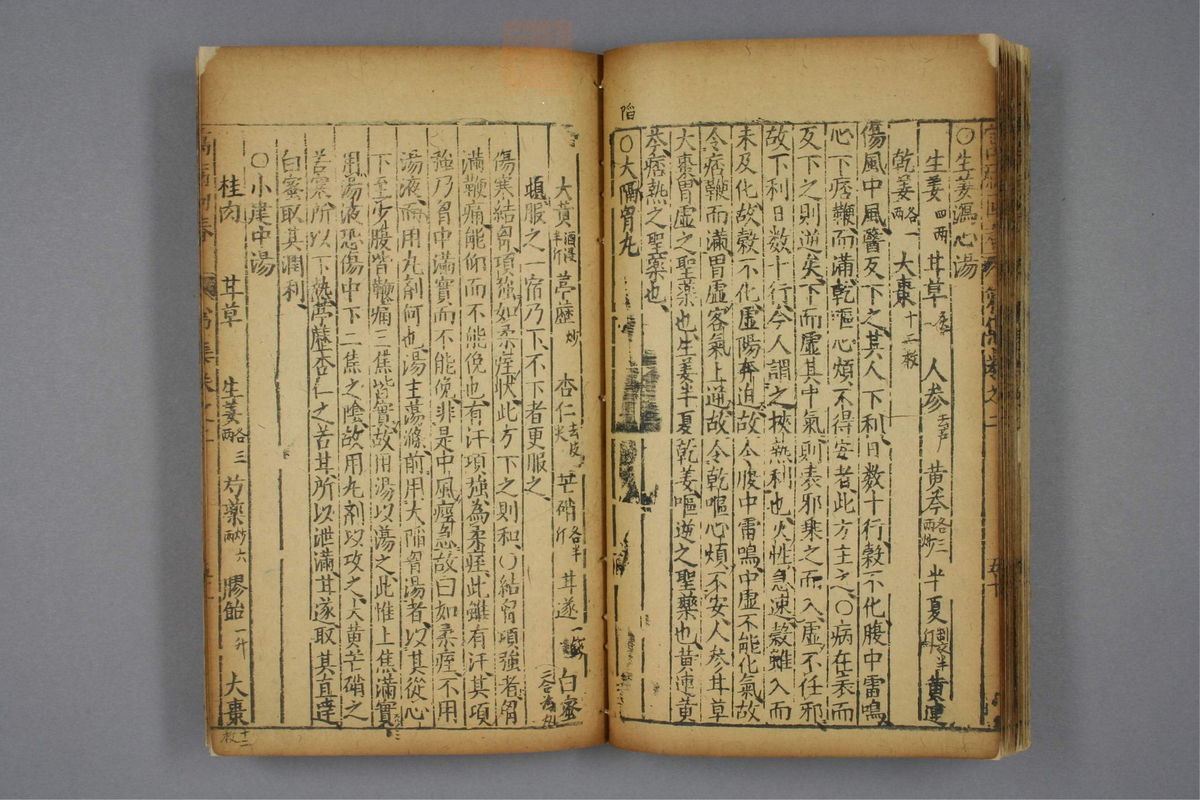 ○生姜瀉心湯
生姜四兩 甘草炙 人參去芦 黃芩各三兩炒 半夏製半斤 黃連
乾姜各一兩 大棗十二枚
傷風中風醫反下之其人下利日数十行穀不化腹中雷鳴
心下痞鞕而滿乾嘔心煩不得安者此方主之○病在表而
反下之則逆矣下而虛其中氣則表邪乘之而入虛不任邪
故下利日数十行今人謂之挾熱利也火性急速穀雖入而
未及化故穀不化虛陽奔迫故令腹中雷鳴中虛不能化氣故
令痞鞕而滿胃虛客氣上逆故令乾嘔心煩不安人參甘草
大棗胃虛之聖藥也生姜半夏乾姜嘔逆之聖藥也黃連黃
芩痞熱之聖藥也
陷
○大陷胷丸
大黃酒浸半斤 葶藶炒 杏仁去皮尖 芒硝各半斤 甘遂一錢 白蜜
頓服之一宿乃下不下者更服之
傷寒結胷項強如柔痓狀此方下之則和○結胷項強者胷
滿鞕痛能仰而不能俛也有汗項強為柔痓此雖有汗其項
強乃胷中滿實而不能俛非是中風痙急故曰如柔痓不用
湯液而用丸劑何也湯主蕩滌前用大陷胷湯者以其從心
下至少腹皆鞕痛三焦皆實故用湯以蕩之此惟上焦滿實
用湯液恐傷中下二焦之陰故用丸劑以攻之大黃芒硝之
苦寒所以下熱葶藶杏仁之苦甘所以泄滿甘遂取其直達
白蜜取其潤利
○小建中湯
桂肉 甘草 生姜各三兩 芍藥炒六兩 膠飴一升 大棗十二枚